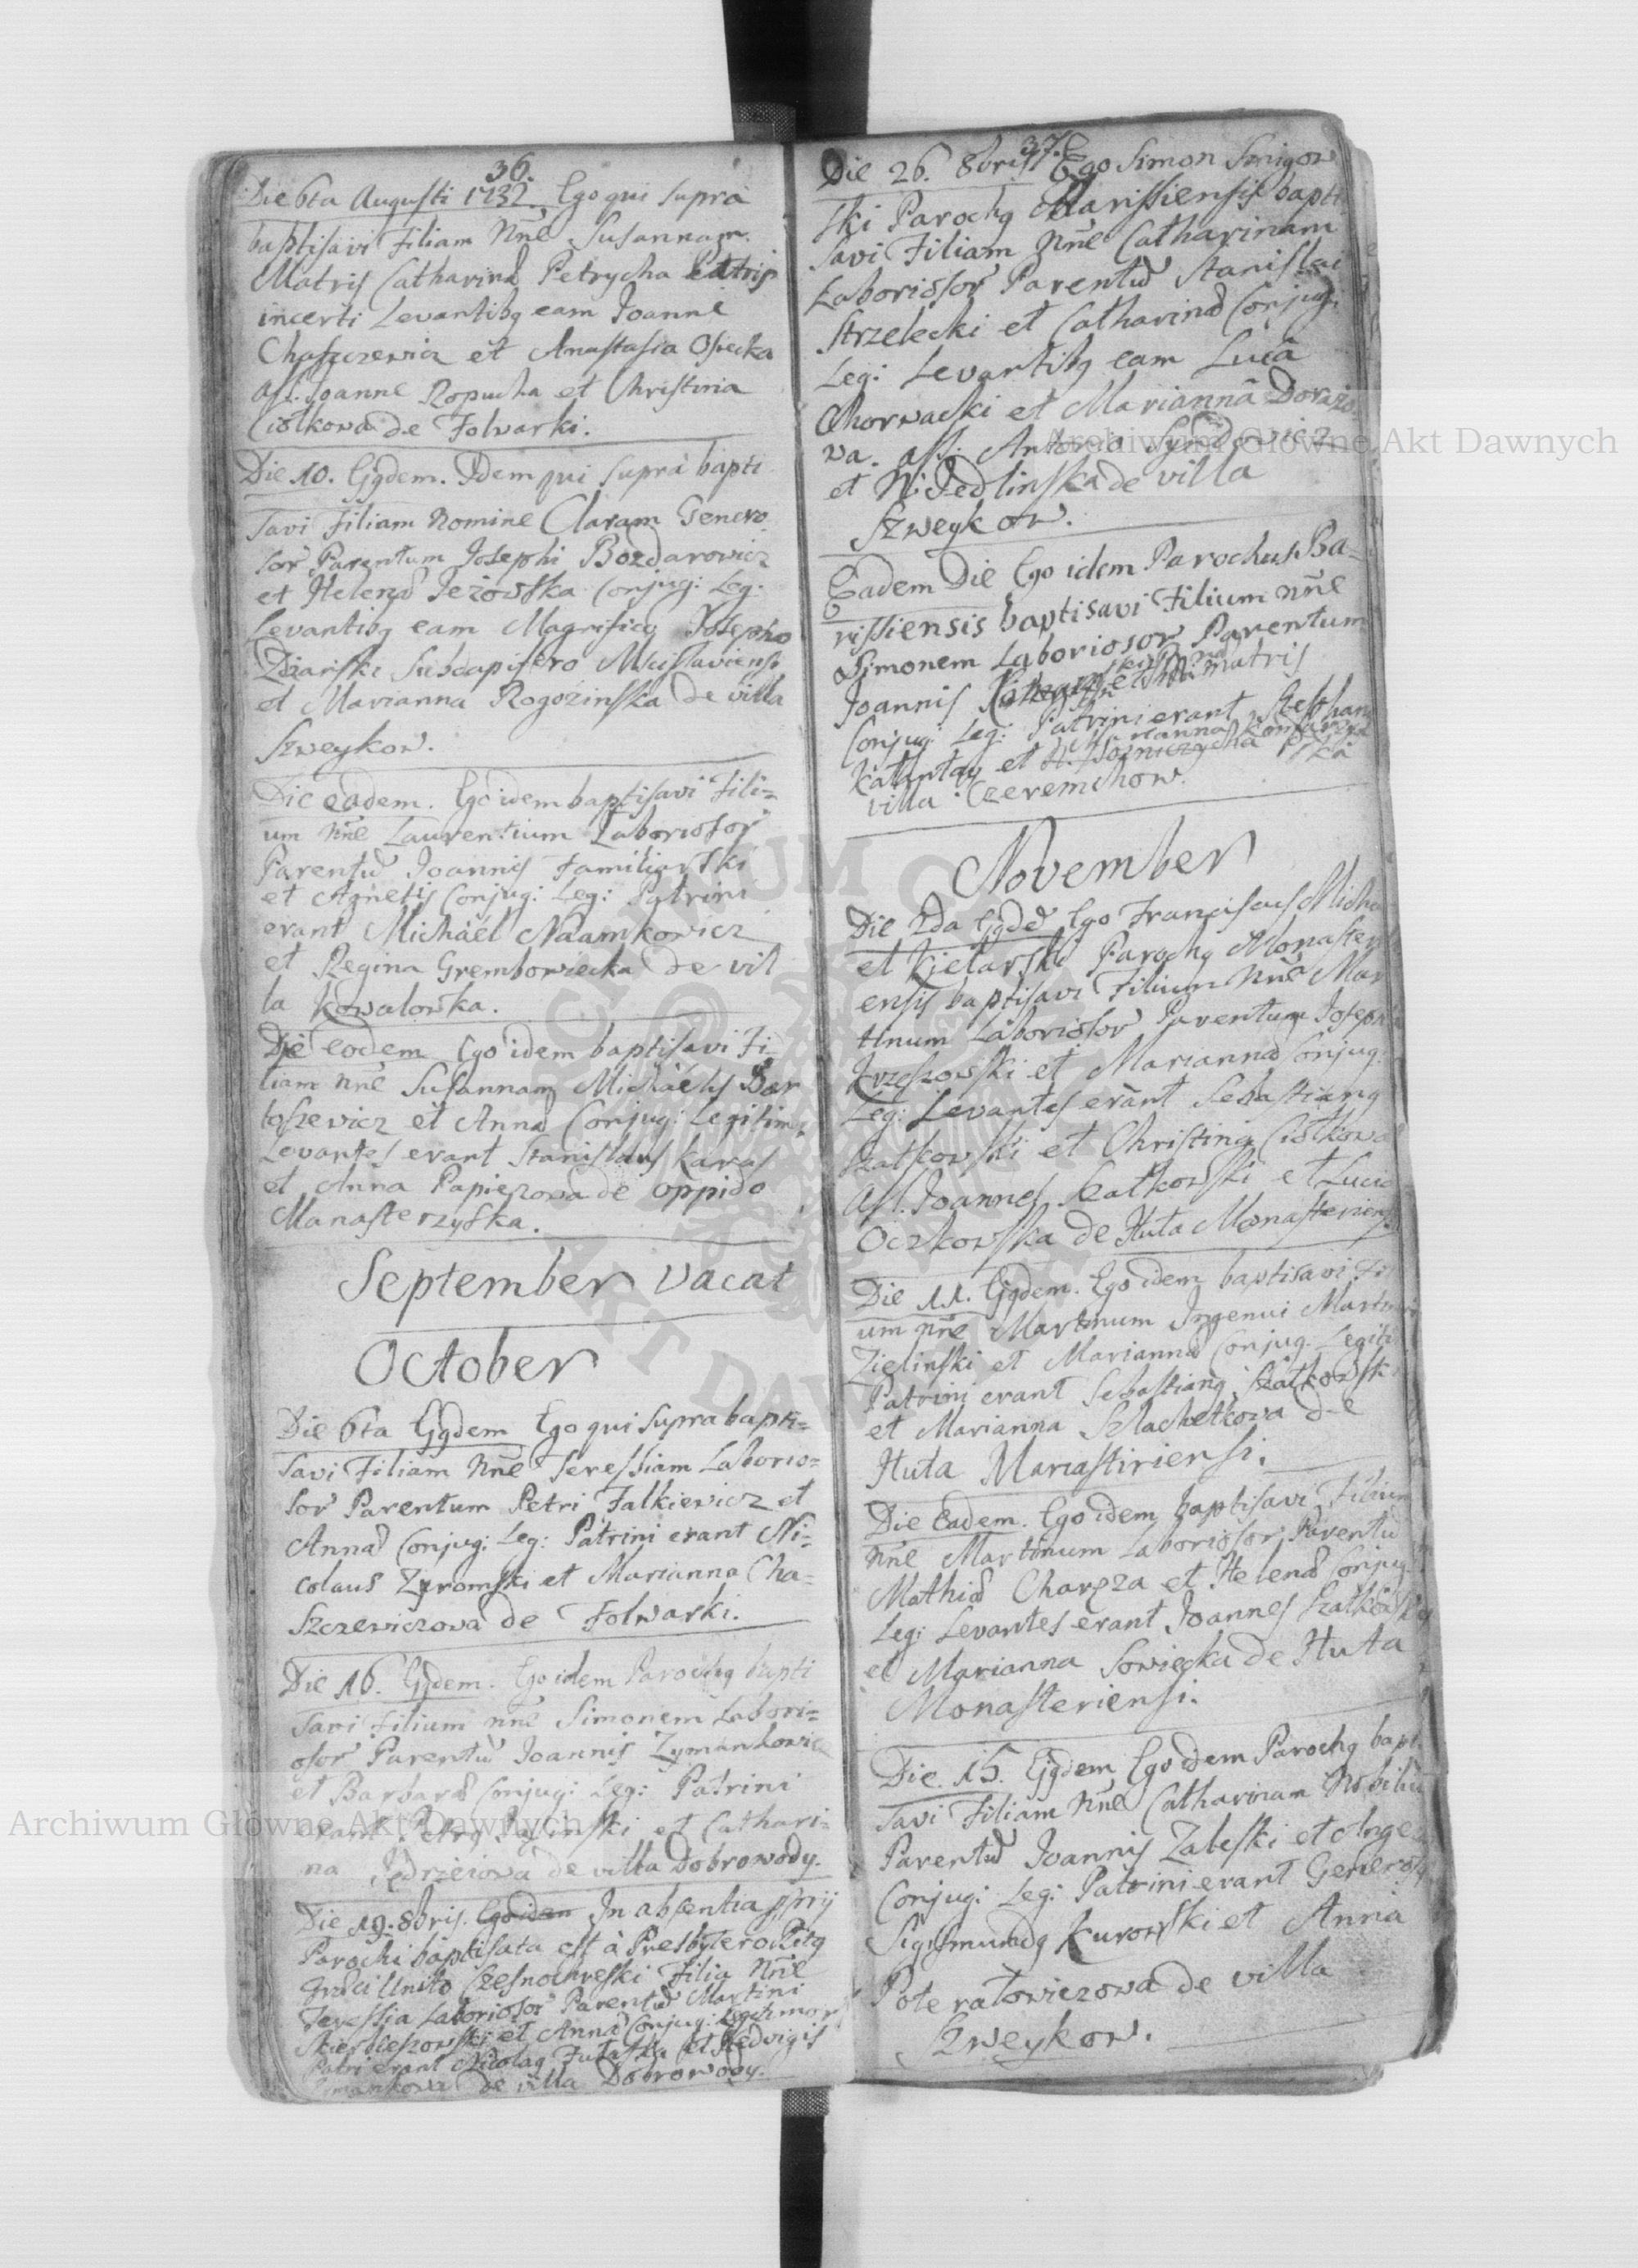 36.
Die 6ta Augusti 1732. Ego qui supra
baptisavi Filiam Nñe Susannam.
Matris Catharinæ Petrycha Patris
incerti Levantibq eam Joanne
Chaszczewicz et Anastasia Osiecka
ass. Joanne Ropucha et Christina
Ciołkowa de Folwarki.
Die 10. Ejqdem. Idem qui supra bapti
savi Filiam Nomine Claram Genero
sor Parentum Josephi Bozdarowicz
et Helenæ Jeżowska Conjug: Leg:
Levantibq eam Magnifico Josepho
Zdiarski Subdapifero Mscislaviensi
et Marianna Rogozinska de villa
Szweykow.
Die eadem. Ego idem baptisavi Fili=
um Nñe Laurentium Laboriosor
Parentũ Joannis Familiarski
et Agnetis Conjug: Leg: Patrini
erant Michaël Naamkowicz
et Regina Grembowiecka de vil
la Kowalowka.
Die eodem Ego idem baptisavi Fi=
liam Nñe Susannam Michaëlis Bar
toszewicz et Annæ Conjug: Legitim:
Levantes erant Stanislaus Karas
et Anna Papiezowa de oppido
Manasterzyska.
September vacat
October
Die 6ta Ejqdem Ego qui supra bapti=
savi Filiam Nñe Teressiam Laborio=
sor Parentum Petri Falkiewicz et
Annæ Conjug: Leg: Patrini erant Ni=
colaus Zyromski et Marianna Cha=
szczewiczowa de Folwarki.
Die 16. Ejqdem. Ego idem Parochq bapti
savi Filium nñe Simonem Labori=
osor Parentũ Joannis Zymankowicz
et Barbaræ Conjug: Leg: Patrini
erant Petrq et Cathari=
na Jędrzeiowa de villa Dobrowody.
Die 19. 8bris. Ego idem In absentia pprij
Parochi baptisata est à Presbytero Ritq
Græci Unito Czesnochreski Filia Nñe
Teressia Laboriosor Parentũ Martini
et Annæ Conjug:
Patri erant Nicolaq et Hedvigis
de villa Dobrowody.
37.
Die 26. 8bris Ego Simon Smigow
ski Parochq Barissiensis bapti
savi Filiam Nñe Catharinam
Laboriosor Parentũ Stanislai
Strzelecki et Catharinæ Conjug:
Leg: Levantibq eam Lucâ
Chorwacki et Mariannâ Dorazo
wa. ass: Antonio
et N: Jedlinska de villa
Szweykow.
Eadem Die Ego idem Parochus Ba=
rissiensis baptisavi Filium nñe
Simonem Laboriosor Parentum
Joannis matris
Conjug: Leg: Patrini erant Stephanq
et Marianna
villa Czeremchow.
November
Die 2da Ejqdẽ Ego Franciscus Micha
el Kielarski Parochq Monasteri
ensis baptisavi Filium Nñe Mar
tinum Laboriosor Parentum Josephi
Krzeszowski et Mariannæ Conjug:
Leg: Levantes erant Sebastianq
Szatkowski et Christina Ciołkowa
Ass. Joannes Szatkowski et Lucia
Oczkowska de Huta Monasteriensi
Die 11. Ejqdem. Ego idem baptisavi Fi
um nñe Martinum Ingenui Martini
Zielinski et Mariannæ Conjug. Legiti
Patrini erant Sebastianq Szatkowski
et Marianna Szlachetkowa de
Huta Manastiriensi.
Die Eadem. Ego idem baptisavi Filium
Nñe Martinum Laboriosor Parentũ
Mathiæ Charęza et Helenæ Conjug
Leg: Levantes erant Joannes Szatkowski
et Marianna Sowiecka de Huta
Monasteriensi.
Die. 15. Ejqdem Ego idem Parochq bapti
savi Filiam Nñe Catharinam Nobiliũ
Parentũ Joannis Zaleski et Agne
Conjug: Leg: Patrini erant Generosq
Sigismundq Kurowski et Anna
Poteratowiczowa de villa
Szweykow.
Archiwum Główne Akt Dawnych
Archiwum Główne Akt Dawnych
ARCHIWUM GŁÓWNE AKT DAWNYCH